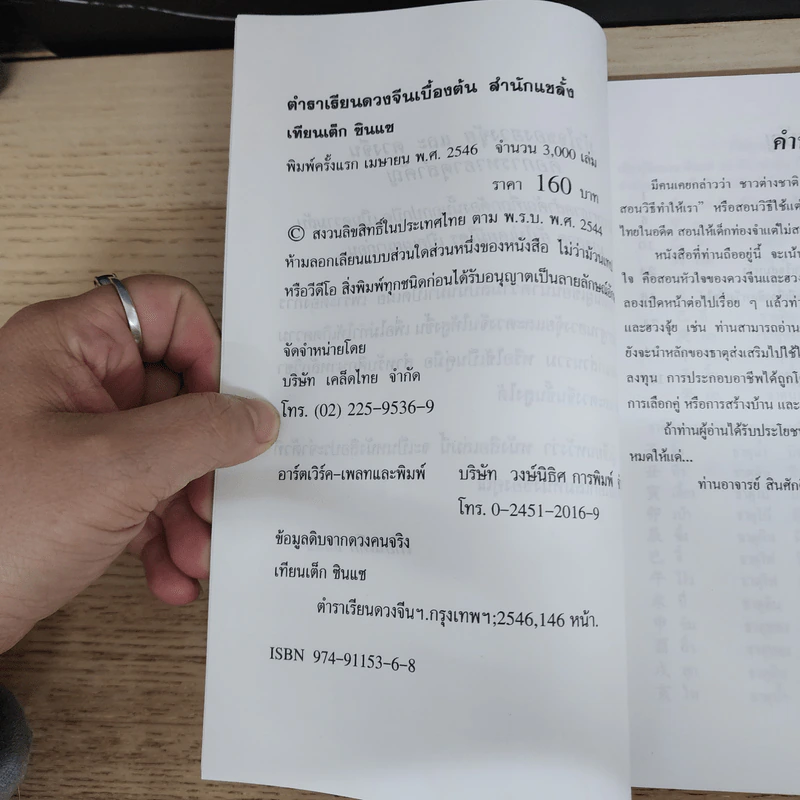 ตำราเรียนดวงจีนเบื้องต้น สำนักแชลั้ง
เทียนเต็ก ซินแซ
พิมพ์ครั้งแรก เมษายน พ.ศ. 2546 จำนวน 3,000 เล่ม
ราคา 160 บาท
© สงวนลิขสิทธิ์ในประเทศไทย ตาม พ.ร.บ. พ.ศ. 2544
ห้ามลอกเลียนแบบส่วนใดส่วนหนึ่งของหนังสือ ไม่ว่าม้วนเทป
หรือวีดีโอ สิ่งพิมพ์ทุกชนิดก่อนได้รับอนุญาตเป็นลายลักษณ์
จัดจำหน่ายโดย
บริษัท เคล็ดไทย จำกัด
โทร. (02) 225-9536-9
อาร์ตเวิร์ค-เพลทและพิมพ์ บริษัท วงษ์นิธิศ การพิมพ์
โทร. 0-2451-2016-9
ข้อมูลดิบจากดวงคนจริง
เทียนเต็ก ซินแซ
ตำราเรียนดวงจีนฯ.กรุงเทพฯ;2546,146 หน้า.
ISBN 974-91153-6-8
คำ
มีคนเคยกล่าวว่า ชาวต่างชาติ
สอนวิธีทำให้เรา" หรือสอนวิธีใช้แต่
ไทยในอดีต สอนให้เด็กท่องจำแต่ไม่
หนังสือที่ท่านถืออยู่นี้ จะเน้น
ใจ คือสอนหัวใจของดวงจีนและฮวง
ลองเปิดหน้าต่อไปเรื่อย ๆ แล้วท่า
และฮวงจุ้ย เช่น ท่านสามารถอ่าน
ยังจะนำหลักของธาตุส่งเสริมไปใช้
ลงทุน การประกอบอาชีพได้ถูก
การเลือกคู่ หรือการสร้างบ้าน และ
ถ้าท่านผู้อ่านได้รับประโยช
หมดให้แด่...
ท่านอาจารย์ สินศัก